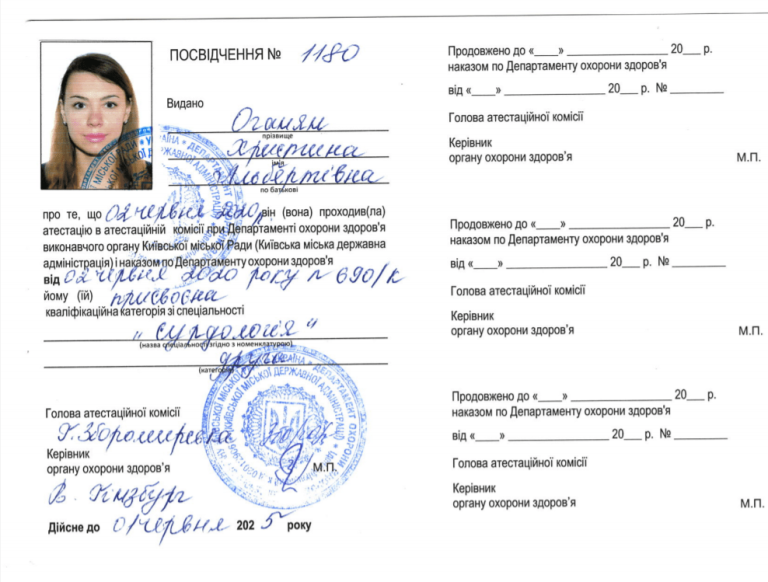 ПОСВІДЧЕННЯ № 1180
Видано
Оганян
прізвище
Христина
ім'я
Альбертівна
по батькові
про те, що 02 червня 2020р. він (вона) проходив(ла)
атестацію в атестаційній комісії при Департаменті охорони здоров'я
виконавчого органу Київської міської Ради (Київська міська державна
адміністрація) і наказом по Департаменту охорони здоров'я
від 02 червня 2020 року № 690/к
йому (їй) присвоєна
кваліфікаційна категорія зі спеціальності
"сурдологія"
(назва спеціальності згідно з номенклатурою)
друга
(категорія)
Голова атестаційної комісії
Керівник
органу охорони здоров'я М.П.
В. Гінзбург
Дійсне до 01 червня 2025 року
Продовжено до «____» ________________ 20___ р.
наказом по Департаменту охорони здоров'я
від «____» ________________ 20___ р. № _________
Голова атестаційної комісії
Керівник
органу охорони здоров'я М.П.
Продовжено до «____» ________________ 20___ р.
наказом по Департаменту охорони здоров'я
від «____» ________________ 20___ р. № _________
Голова атестаційної комісії
Керівник
органу охорони здоров'я М.П.
Продовжено до «____» ________________ 20___ р.
наказом по Департаменту охорони здоров'я
від «____» ________________ 20___ р. № _________
Голова атестаційної комісії
Керівник
органу охорони здоров'я М.П.